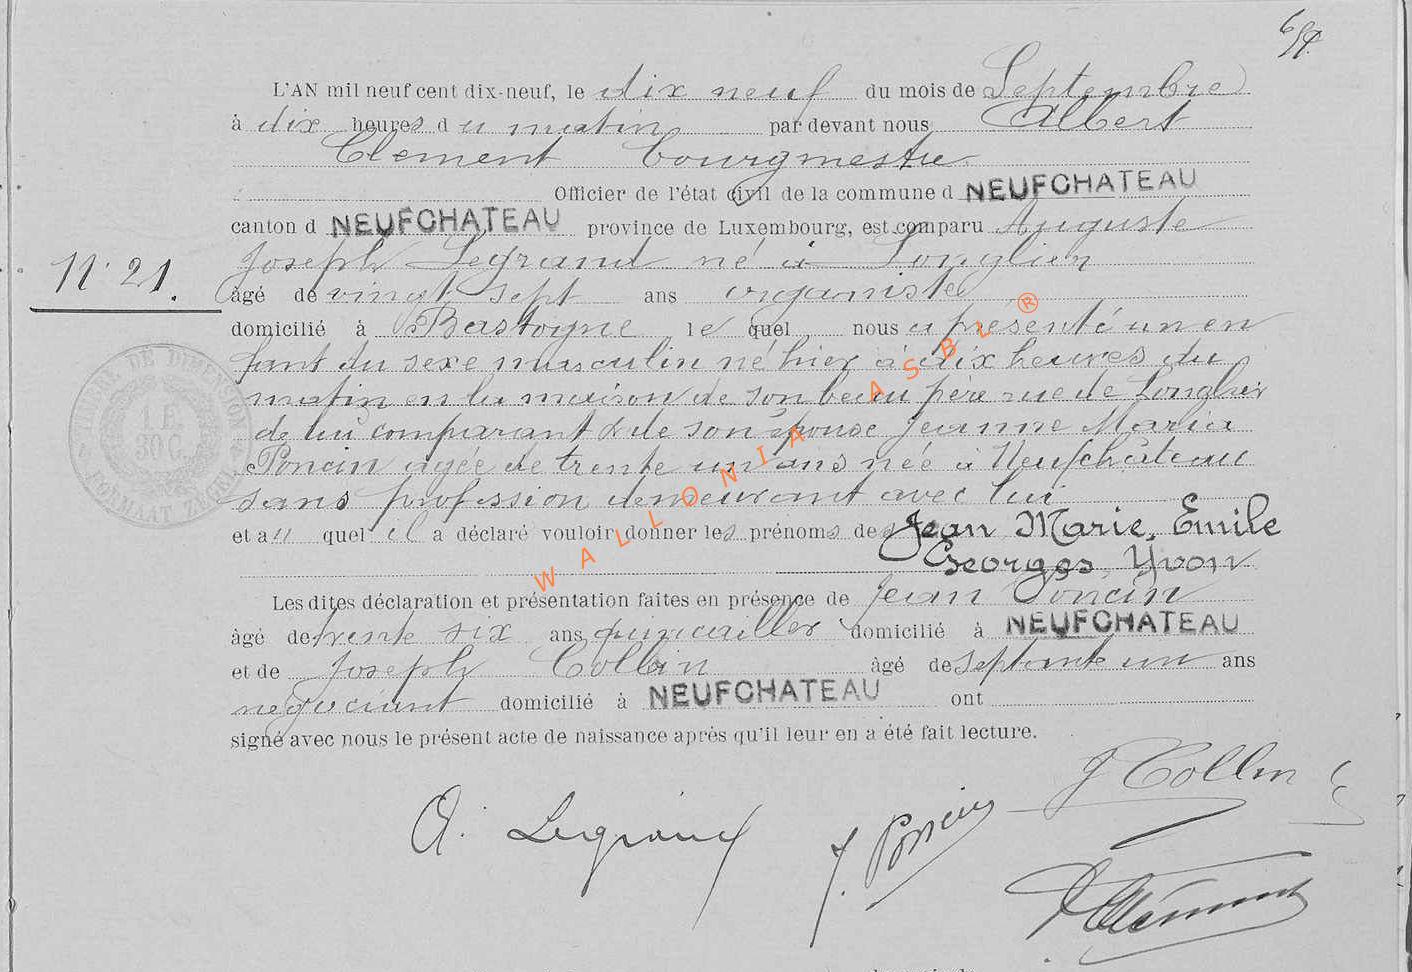 L'AN mil neuf cent dix-neuf, le dix neuf du mois de Septembre
à dix heures du matin par devant nous Albert
Clément bourgmestre
Officier de l'état civil de la commune d NEUFCHATEAU
canton d NEUFCHATEAU province de Luxembourg, est comparu Auguste
Joseph Legrand né à Longlier
N° 21.
âgé de vingt sept ans organiste
domicilié à Bastogne lequel nous a présenté un en
fant du sexe masculin né hier à dix heures du
matin en la maison de son beau père rue de Longlier
de lui comparant & de son épouse Jeanne Maria
Poncin agée de trente un ans née à Neufchâteau
sans profession demeurant avec lui
et auquel il a déclaré vouloir donner les prénoms de Jean Marie, Emile
Georges, Yvon
Les dites déclaration et présentation faites en présence de Jean Poncin
âgé de trente six ans quincailler domicilié à NEUFCHATEAU
et de Joseph Collin âgé de septante un ans
negociant domicilié à NEUFCHATEAU ont
signé avec nous le présent acte de naissance après qu'il leur en a été fait lecture.
J Collin
A. Legrand
J. Poncin
A Clément
TIMBRE DE DIMENSION
1 F.
30 C.
FORMAAT ZEGEL
WALLONIA ASBL ®